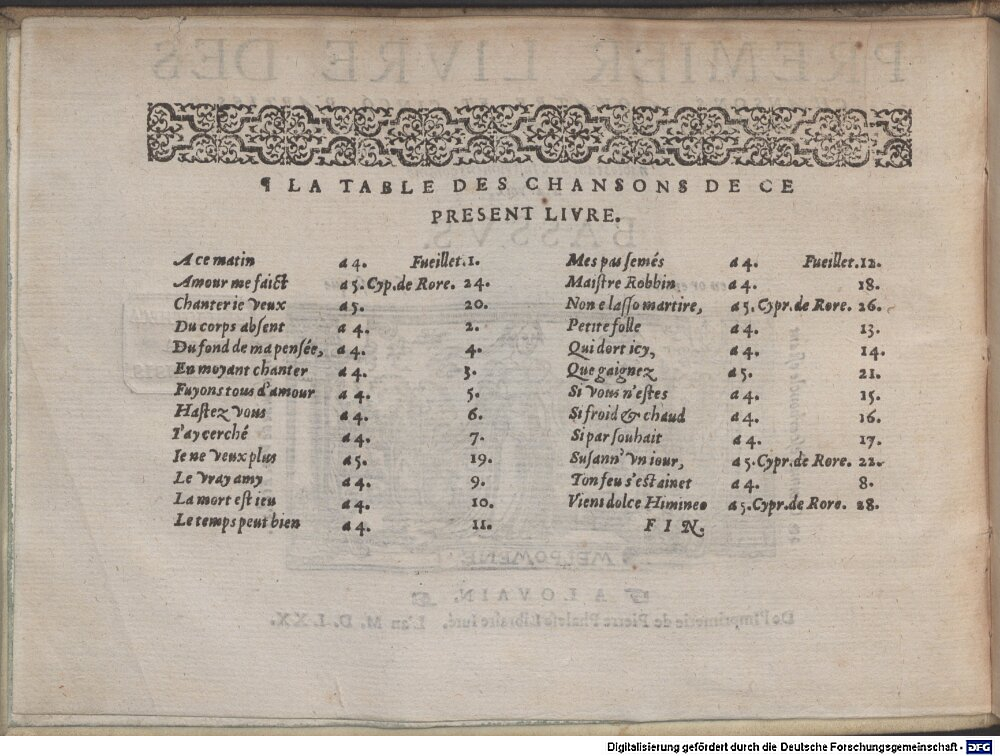 ¶ LA TABLE DES CHANSONS DE CE
PRESENT LIVRE.
A ce matin a 4. Fueillet. 1.
Amour me faict a 5. Cyp. de Rore. 24.
Chanter ie veux a 5. 20.
Du corps absent a 4. 2.
Du fond de ma pensée, a 4. 4.
En m'oyant chanter a 4. 3.
Fuyons tous d'amour a 4. 5.
Hastez vous a 4. 6.
I'ay cerché a 4. 7.
Ie ne veux plus a 5. 19.
Le vray amy a 4. 9.
La mort est ieu a 4. 10.
Le temps peut bien a 4. 11.
Mes pas semés a 4. Fueillet. 12.
Maistre Robbin a 4. 18.
Non e lasso martire, a 5. Cypr. de Rore. 26.
Petite folle a 4. 13.
Qui dort icy, a 4. 14.
Que gaignez a 5. 21.
Si vous n'estes a 4. 15.
Si froid & chaud a 4. 16.
Si par souhait a 4. 17.
Susann' vn iour, a 5. Cypr. de Rore. 22.
Ton feu s'estainct a 4. 8.
Vieni dolce Himineo a 5. Cypr. de Rore. 28.
F I N.
Digitalisierung gefördert durch die Deutsche Forschungsgemeinschaft - DFG